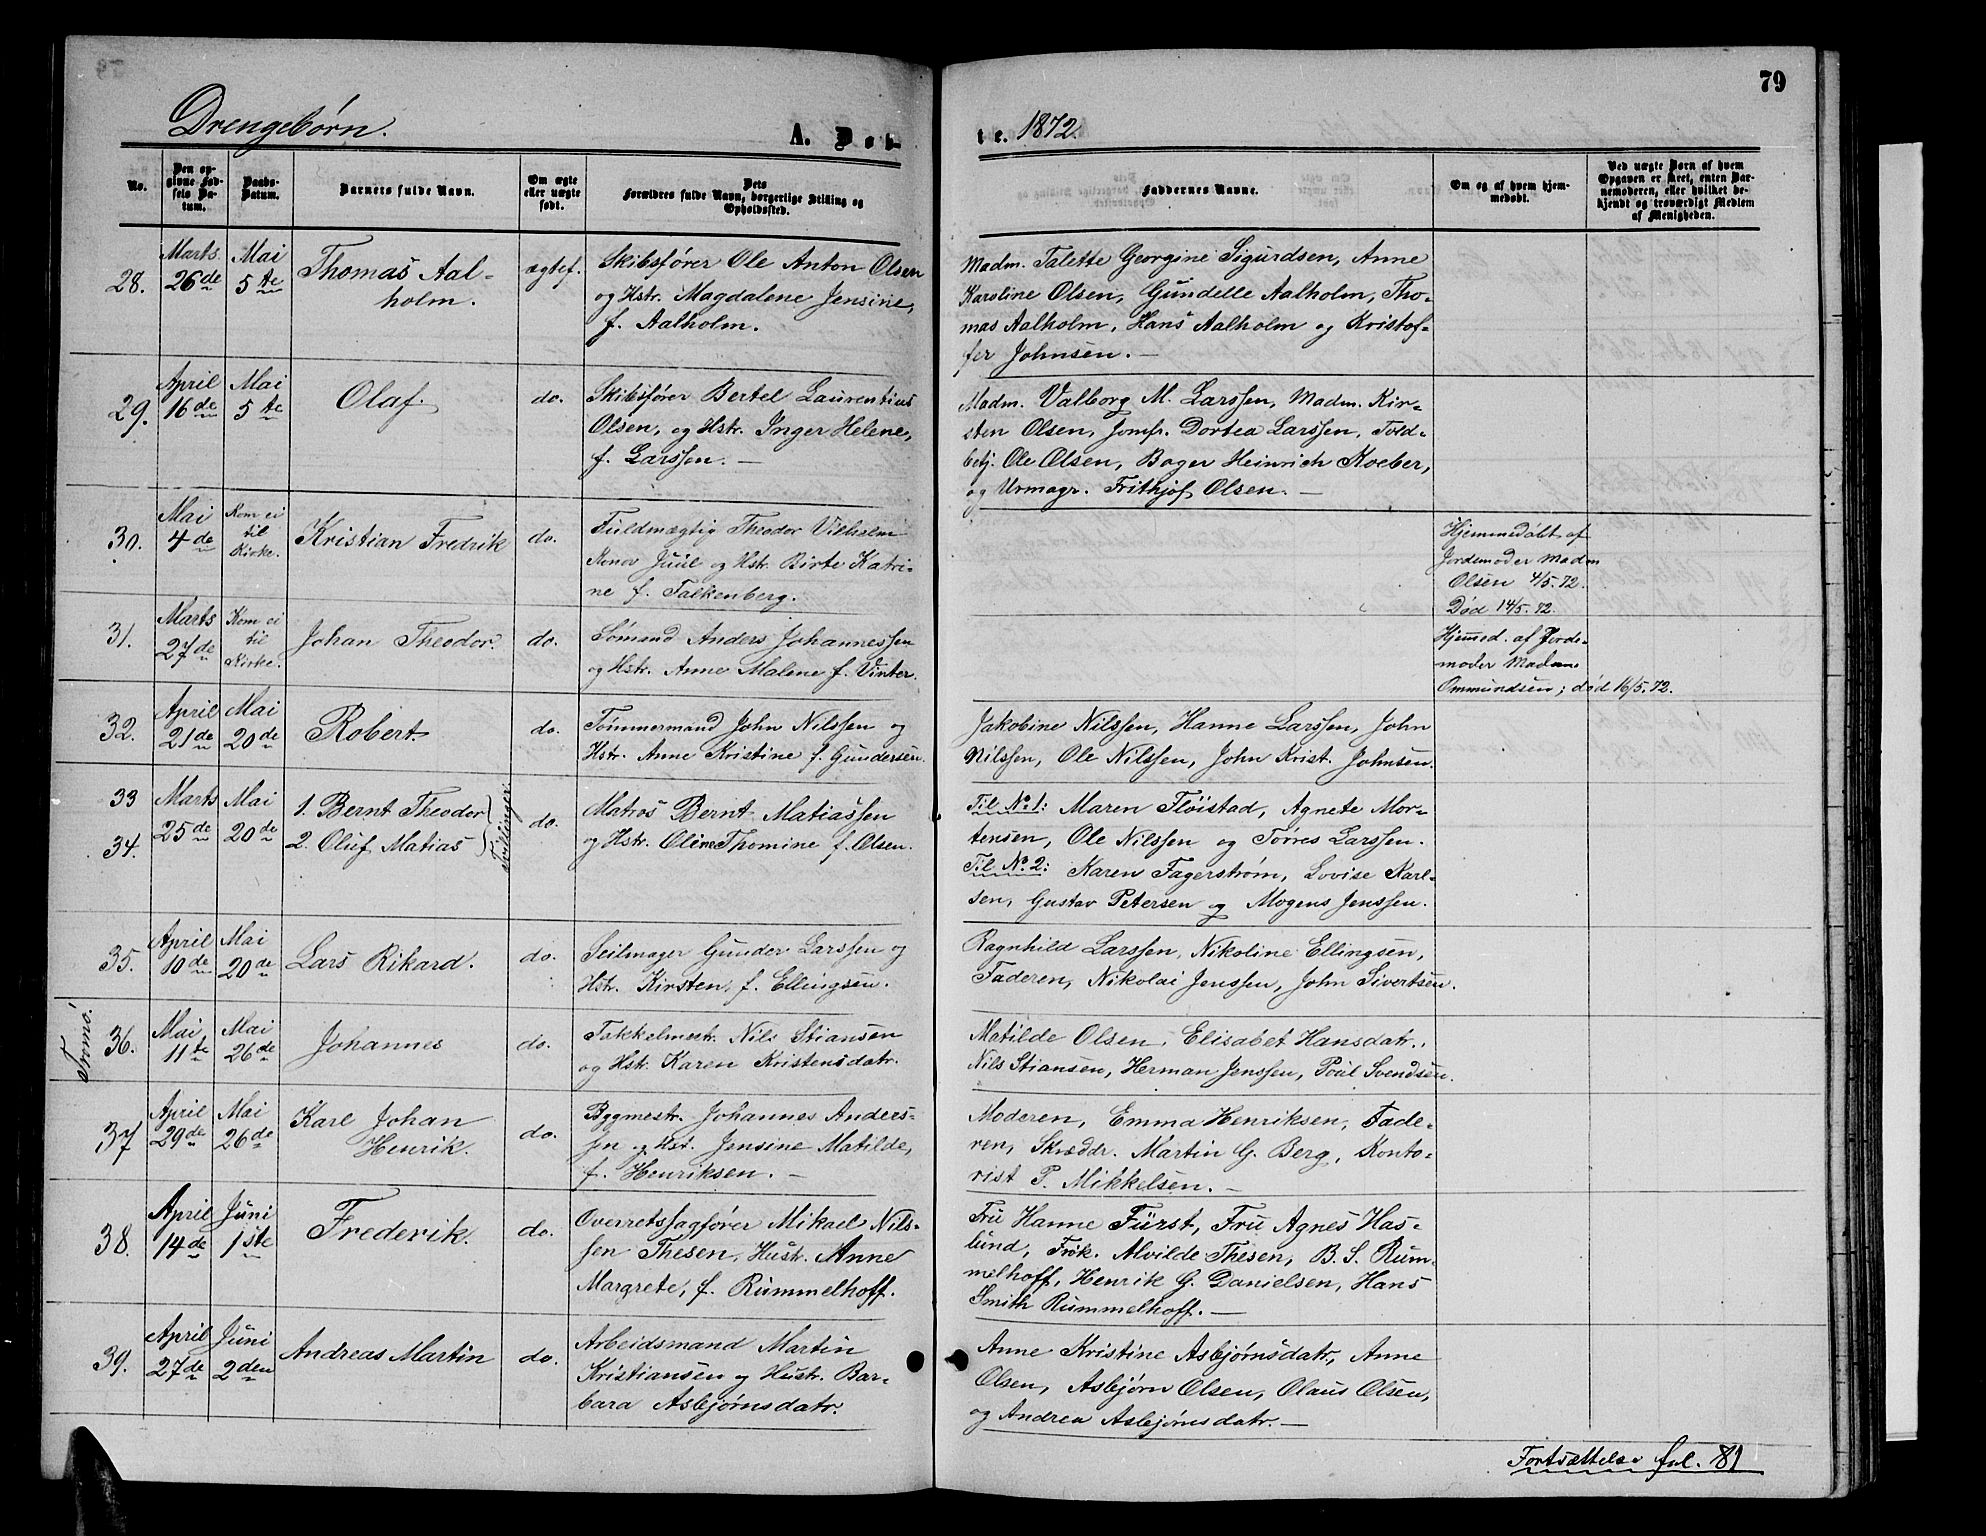 79
Drengebörn.
A. Døb-
te. 1872.
No.
Den op-
givne Fød-
sels Da-
tum.
Daabs-
Datum.
Barnets fulde Navn.
Om ægte
eller uægte
født.
Dets
Forældres fulde Navn, borgerlige Stilling og
Opholdssted.
Faddernes Navne.
Om og af hvem hjem-
medøbt.
Ved uægte Børn af hvem
Opgaven er skeet, enten Bar-
nemoderen, eller hvilket be-
kjendt og troværdigt Medlem
af Menigheden.
28.
Marts
26de
Mai
5te
Thomas Aal-
holm.
ægtef.
Skibsfører Ole Anton Olsen
og Hstr. Magdalene Jensine,
f. Aalholm.
Madm. Talette Georgine Sigurdsen, Anne
Karoline Olsen, Gundelle Aalholm, Tho-
mas Aalholm, Hans Aalholm og Kristof-
fer Johnsen. —
29.
April
16de
Mai
5te
Olaf.
do.
Skibsfører Bertel Laurentius
Olsen, og Hstr. Inger Helene,
f. Larssen. —
Madm. Valborg M. Larssen, Madm. Kir-
sten Olsen, Jomfr. Dortea Larssen, Told-
betj. Ole Olsen, Bager Heinrich Koeber,
og Urmagr. Frithjof Olsen. —
30.
Mai
4de
Kom ei
til
Kirke.
Kristian Fredrik
do.
Fuldmægtig Theodor Vilhelm
Juul og Hstr. Birte Katri-
ne f. Falkenberg.
Hjemmedøbt af
Jordemoder Madm
Olsen 4/5.72.
Død 14/5.72.
31.
Marts
27de
Kom ei
til
Kirke.
Johan Theodor.
do.
Sømand Anders Johannessen
og Hstr. Anne Malene f. Vinter.
Hjemd. af Jorde-
moder Madam
Ommundsen; død 16/5.72.
32.
April
21de
Mai
20de
Robert
do.
Tömmermand John Nilssen og
Hstr. Anne Kristine f. Gundersen.
Jakobine Nilssen, Hanne Larssen, John
Nilssen, Ole Nilssen, John Krist. Johnsen.
33
34.
Marts
25de
Mai
20de
1. Bernt Theodor
2. Oluf Matias
Tvillinger
do.
Matros Bernt Matiassen
og Hstr. Oline Thomine f. Olsen.
Til No. 1: Maren Flöistad, Agnete Mor-
tensen, Ole Nilssen og Törres Larssen.
Til No. 2: Karen Fagerström, Lovise Karl-
sen, Gustav Petersen og Mogens Jenssen.
35.
April
10de
Mai
20de
Lars Rikard.
do.
Seilmager Gunder Larssen og
Hstr. Kirsten, f. Ellingsen.
Ragnhild Larssen, Nikoline Ellingsen,
Faderen, Nikolai Jenssen, John Sivertsen.
Tromö.
36.
Mai
11te
Mai
26de
Johannes
do.
Takkelmestr. Nils Stiansen
og Hstr. Karen Kristensdatr.
Matilde Olsen, Elisabet Hansdatr.,
Nils Stiansen, Herman Jenssen, Poul Svendsen.
37
April
29de
Mai
26de
Karl Johan
Henrik.
do.
Bygmestr. Johannes Anders-
sen og Hst. Jensine Matilde,
f. Henriksen. —
Moderen, Emma Henriksen, Fade-
ren, Skræddr. Martin G. Berg, Konto-
rist P. Mikkelsen. —
38.
April
14de
Juni
1ste
Frederik.
do.
Overretssagfører Mikael Nils-
sen Thesen, Hustr. Anne
Margrete, f. Rummelhoff.
Fru Hanne Fürst, Fru Agnes Has-
lund, Frøk. Alvilde Thesen, B. S. Rum-
melhoff, Henrik G. Danielsen, Hans
Smith Rummelhoff. —
39.
April
27de
Juni
2den
Andreas Martin
do.
Arbeidsmand Martin
Kristiansen og Hustr. Bar-
bara Asbjørnsdatr.
Anne Kristine Asbjørnsdatr., Anne
Olsen, Asbjørn Olsen, Olaus Olsen,
og Andrea Asbjørnsdatr. —
Fortsættelse fol. 81